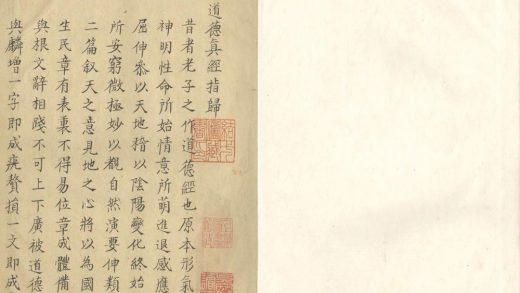 道德眞經指歸
昔者老子之作道德經也原本形氣
神明性命所始情意所萌進退感應
屈伸叅以天地稽以陰陽變化終始
所安窮微極妙以觀自然演要伸類
二篇叙天之意見地之心將以為國
生民章有表裏不得易位章成體備
與根文辭相踐不可上下廣被道德
與麟增一字即成疣贅損一文即成